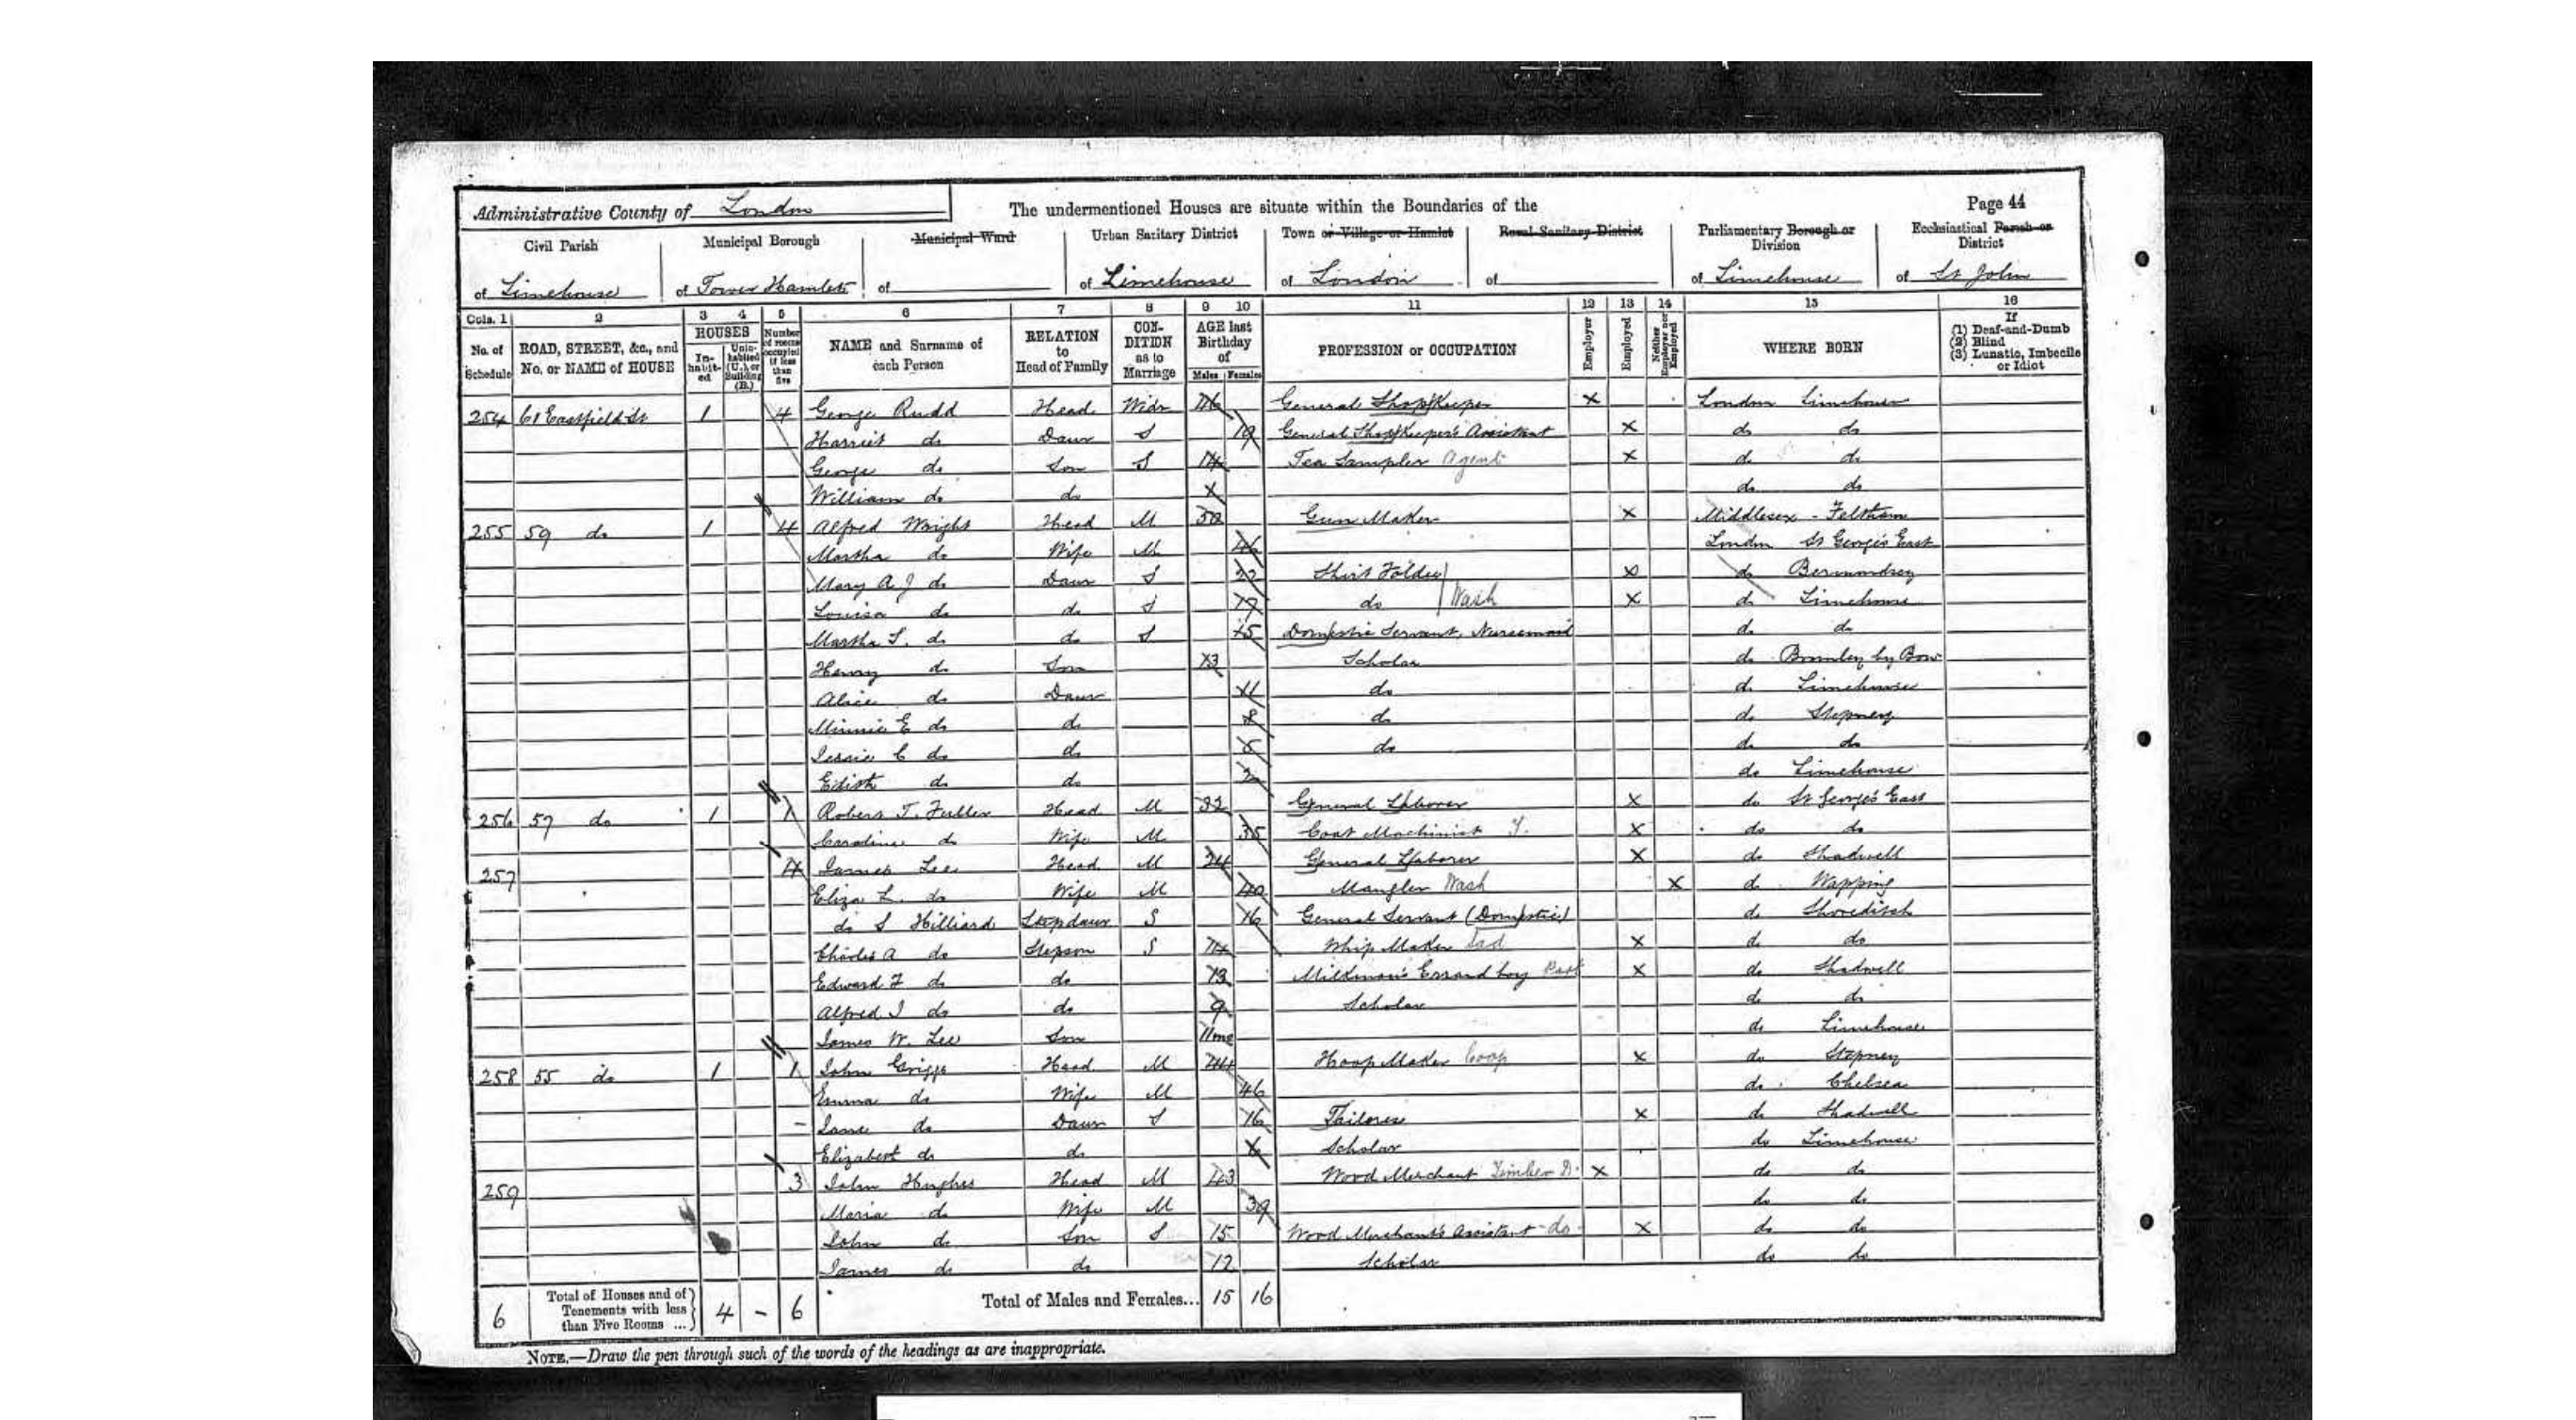 Administrative County of London
The undermentioned Houses are situate within the Boundaries of the
Page 44
Civil Parish of Limehouse
Municipal Borough of Tower Hamlets
Municipal Ward of
Urban Sanitary District of Limehouse
Town or Village or Hamlet of London
Rural Sanitary District of
Parliamentary Borough or Division of Limehouse
Ecclesiastical Parish or District of St John
Cols. 1 2 3 4 5 6 7 8 9 10 11 12 13 14 15 16
No. of Schedule
ROAD, STREET, &c., and No. or NAME of HOUSE
HOUSES
In-habit-ed
Unin-habited (U.), or Building (B.)
Number of rooms occupied if less than five
NAME and Surname of each Person
RELATION to Head of Family
CON-DITION as to Marriage
AGE last Birthday of
Males Females
PROFESSION or OCCUPATION
Employer
Employed
Neither Employer nor Employed
WHERE BORN
If (1) Deaf-and-Dumb (2) Blind (3) Lunatic, Imbecile or Idiot
254 61 Eastfield St 1 4 George Rudd Head Widr 46 General Shopkeeper X London Limehouse
Harriet do Daur S 19 General Shopkeeper's Assistant X do do
George do Son S 14 Tea Sampler Agent X do do
William do do do do
255 59 do 1 4 Alfred Wright Head M 50 Gun Maker X Middlesex - Feltham
Martha do Wife M 46 London St George's East
Mary A J do Daur S 22 Shirt Folder X do Bermondsey
Louisa do do S do Wash X do Limehouse
Martha S. do do S 15 Domestic Servant, Nursemaid do do
Henry do Son 13 Scholar do Bromley by Bow
Alice do Daur 11 do do Limehouse
Minnie E do do 8 do do Stepney
Jessie C do do do do do
Edith do do 2 do Limehouse
256 57 do 1 1 Robert T. Fuller Head M 32 General Laborer X do St George's East
Caroline do Wife M 35 Coat Machinist T. X do do
257 4 James Lee Head M 24 General Laborer X do Shadwell
Eliza L. do Wife M 40 Mangler Wash X do Wapping
do S Hilliard Stepdaur S 16 General Servant (Domestic) do Shoreditch
Charles A do Stepson S 14 Whip Maker Lad X do do
Edward F do do 13 Milkman's Errand boy X do Shadwell
Alfred J do do 9 Scholar do do
James W. Lee Son 11mo do Limehouse
258 55 do 1 1 John Griggs Head M 44 Hoop Maker Coop X do Stepney
Emma do Wife M 46 do Chelsea
Jane do Daur S 16 Tailoress X do Shadwell
Elizabeth do do Scholar do Limehouse
259 3 John Hughes Head M 43 Wood Merchant Timber D. X do do
Maria do Wife M 39 do do
John do Son S 15 Wood Merchant's Assistant do X do do
James do do 12 Scholar do do
6 Total of Houses and of Tenements with less than Five Rooms ... 4 - 6
Total of Males and Females... 15 16
NOTE.—Draw the pen through such of the words of the headings as are inappropriate.